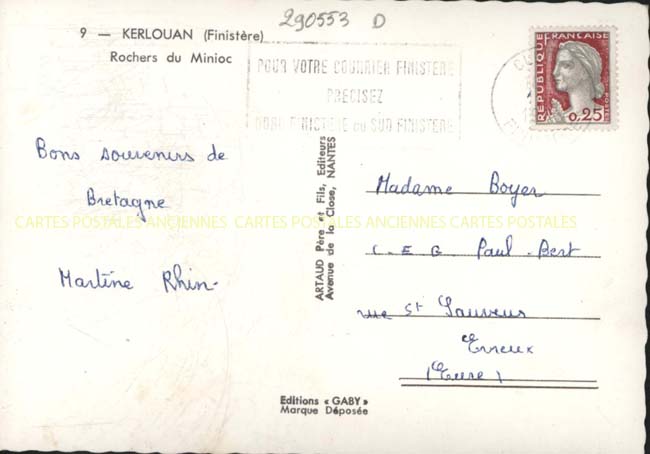 290553 D
9 — KERLOUAN (Finistère)
Rochers du Minioc
POUR VOTRE COURRIER FINISTERE
PRECISEZ
NORD FINISTERE OU SUD FINISTERE
REPUBLIQUE FRANÇAISE
POSTES
0,25
Bons souvenirs de
Bretagne
Martine Rhin-
ARTAUD Père et Fils, Editeurs
Avenue de la Close, NANTES
Madame Boyer
C.E.G Paul-Bert
rue St Sauveur
Evreux
(Eure)
CARTES POSTALES ANCIENNES CARTES POSTALES ANCIENNES CARTES POSTALES
Editions « GABY »
Marque Déposée